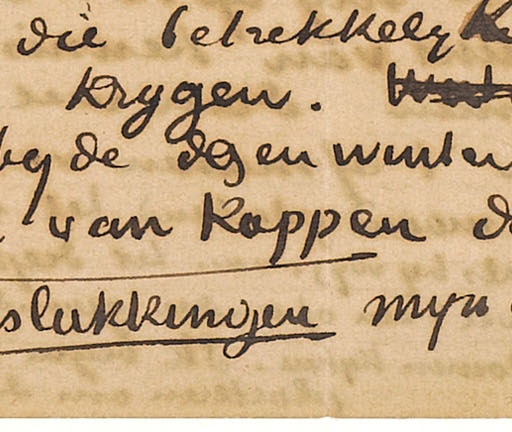 die betrekkelyk
krygen.
by de dyen winter
van Koppen d
slukkingen myn